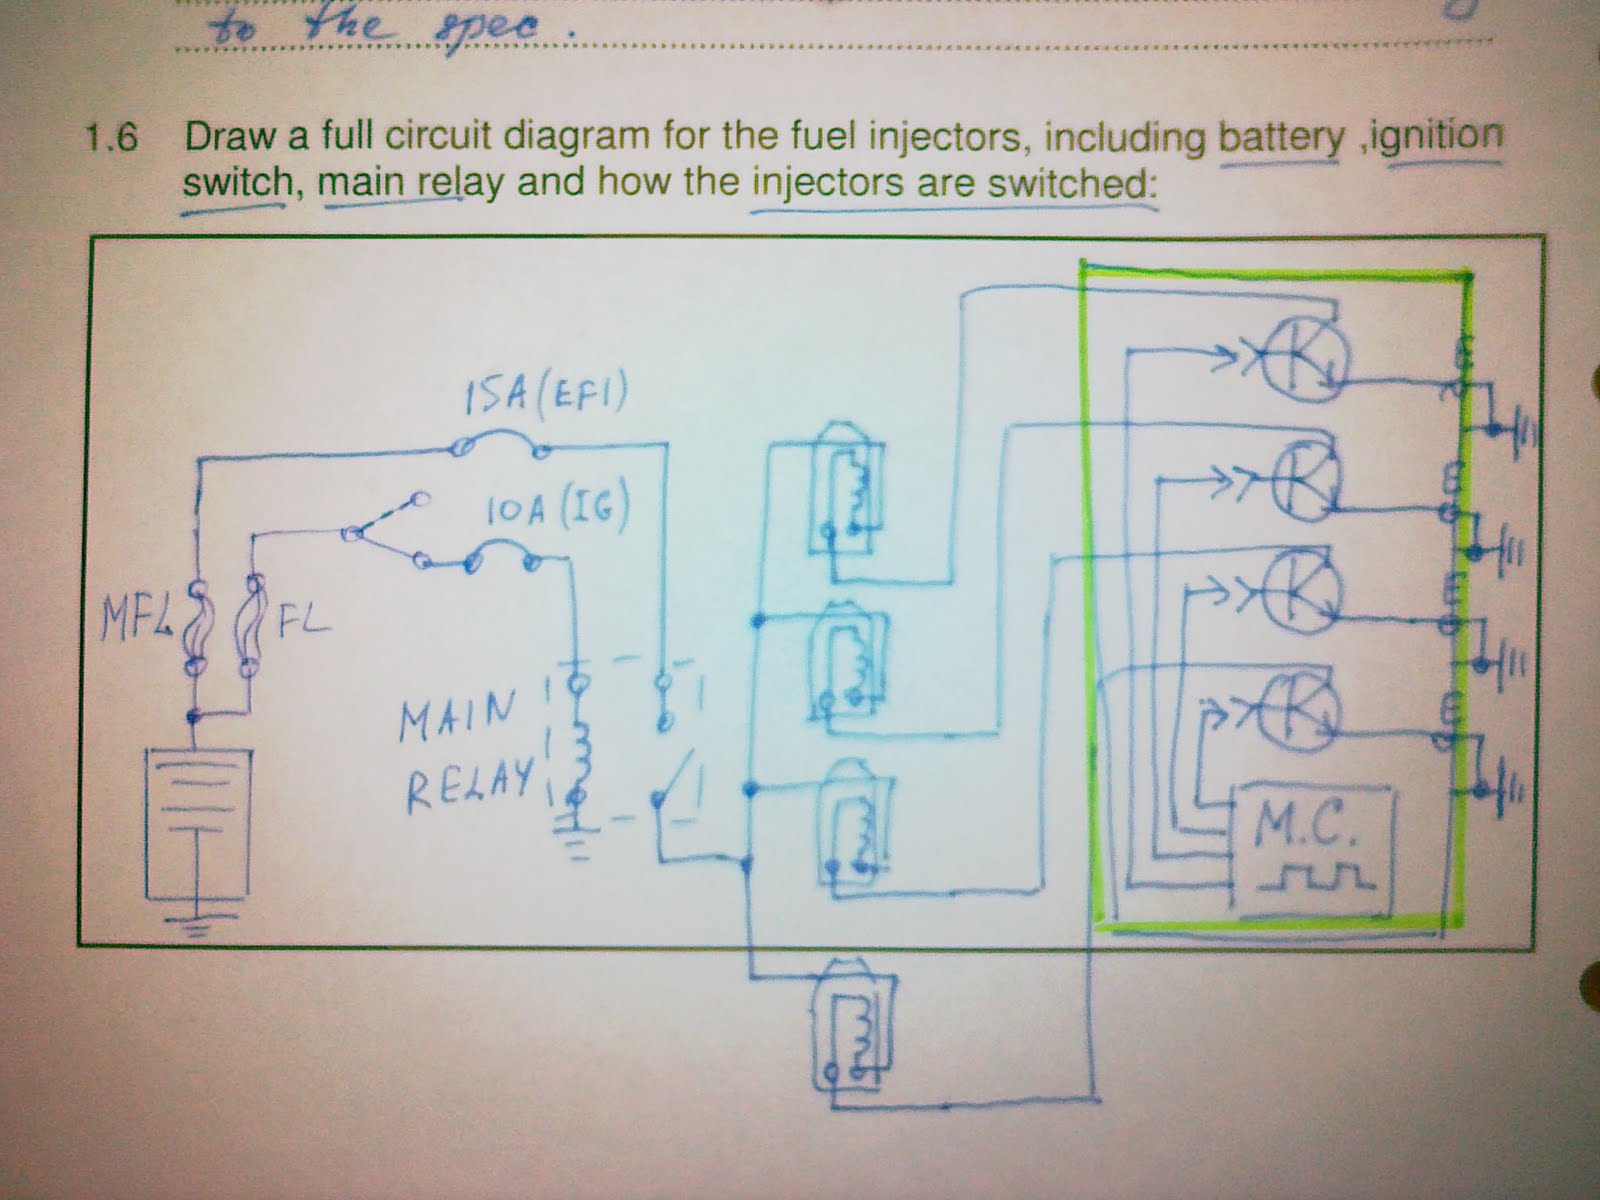 to the spec.
1.6 Draw a full circuit diagram for the fuel injectors, including battery ,ignition
switch, main relay and how the injectors are switched:
15A (EFI)
10A (IG)
MFL
FL
MAIN
RELAY
E
E
E
E
M.C.